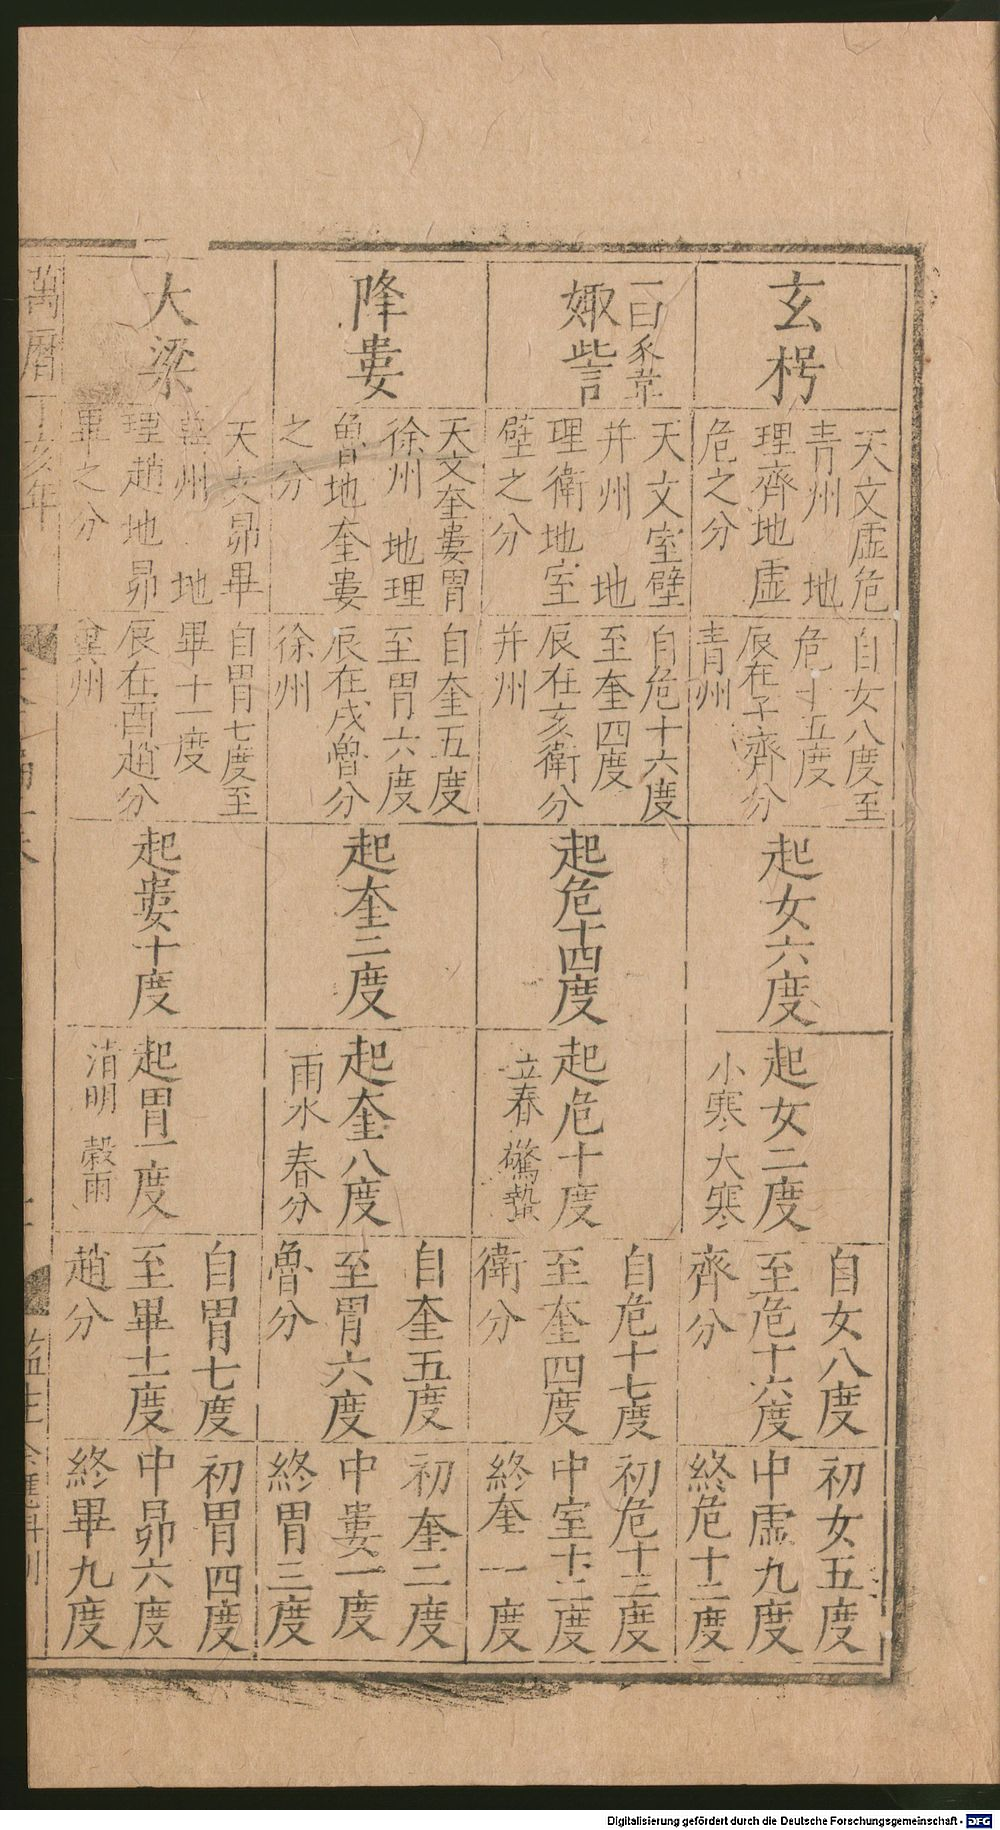 玄枵
天文虛危
青州　地
理齊地虛
危之分
自女八度至
危十五度
辰在子齊分
青州
起女六度
起女二度
小寒大寒
自女八度
至危十六度
齊分
初女五度
中虛九度
終危十二度
一曰豕韋
娵訾
天文室壁
并州　地
理衛地室
壁之分
自危十六度
至奎四度
辰在亥衛分
并州
起危十四度
起危十度
立春驚蟄
自危十七度
至奎四度
衛分
初危十三度
中室十二度
終奎一度
降婁
天文奎婁胃
徐州　地理
魯地奎婁
之分
自奎五度
至胃六度
辰在戌魯分
徐州
起奎二度
起奎八度
雨水春分
自奎五度
至胃六度
魯分
初奎二度
中婁一度
終胃三度
大梁
天文昴畢
冀州　地
理趙地昴
畢之分
自胃七度至
畢十一度
辰在酉趙分
冀州
起婁十度
起胃一度
清明　穀雨
自胃七度
至畢十一度
趙分
初胃四度
中昴六度
終畢九度
萬曆丁亥年
監生
Digitalisierung gefördert durch die Deutsche Forschungsgemeinschaft - DFG